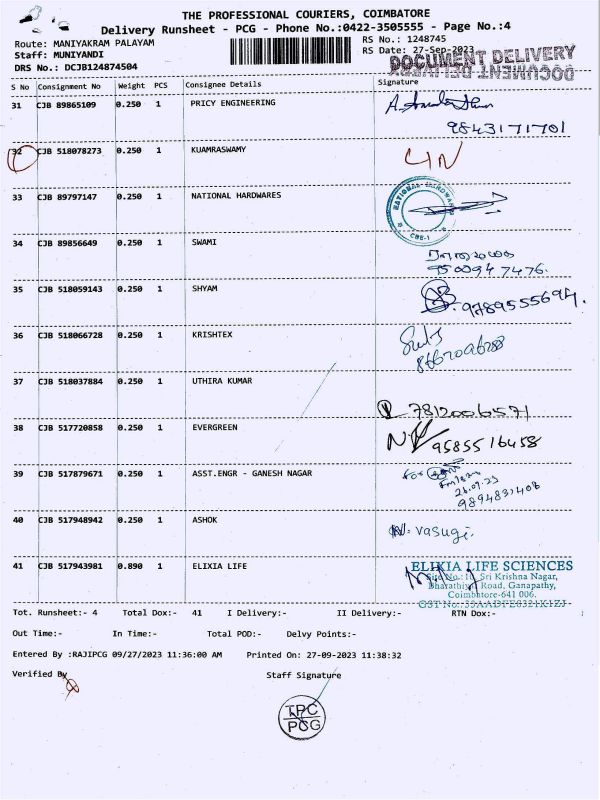 THE PROFESSIONAL COURIERS, COIMBATORE
Delivery Runsheet - PCG - Phone No.:0422-3505555 - Page No.:4
Route: MANIYAKRAM PALAYAM
RS No.: 1248745
Staff: MUNIYANDI
RS Date: 27-Sep-2023
DRS No.: DCJB124874504
DOCUMENT DELIVERY
S No Consignment No Weight PCS Consignee Details Signature
31 CJB 89865109 0.250 1 PRICY ENGINEERING
9843171701
32 CJB 518078273 0.250 1 KUAMRASWAMY
33 CJB 89797147 0.250 1 NATIONAL HARDWARES
CBE-1
34 CJB 89856649 0.250 1 SWAMI
9500947476.
35 CJB 518059143 0.250 1 SHYAM
9789555694.
36 CJB 518066728 0.250 1 KRISHTEX
37 CJB 518037884 0.250 1 UTHIRA KUMAR
7812006571
38 CJB 517720858 0.250 1 EVERGREEN
9585516458
39 CJB 517879671 0.250 1 ASST.ENGR - GANESH NAGAR
For
9894831408
40 CJB 517948942 0.250 1 ASHOK
N. vasugi.
41 CJB 517943981 0.890 1 ELIXIA LIFE
ELIXIA LIFE SCIENCES
Site No.:10, Sri Krishna Nagar,
Bharathiyar Road, Ganapathy,
Coimbatore-641 006.
Tot. Runsheet:- 4 Total Dox:- 41 I Delivery:- II Delivery:- RTN Dox:-
Out Time:- In Time:- Total POD:- Delvy Points:-
Entered By :RAJIPCG 09/27/2023 11:36:00 AM Printed On: 27-09-2023 11:38:32
Verified By Staff Signature
TPC
PCG